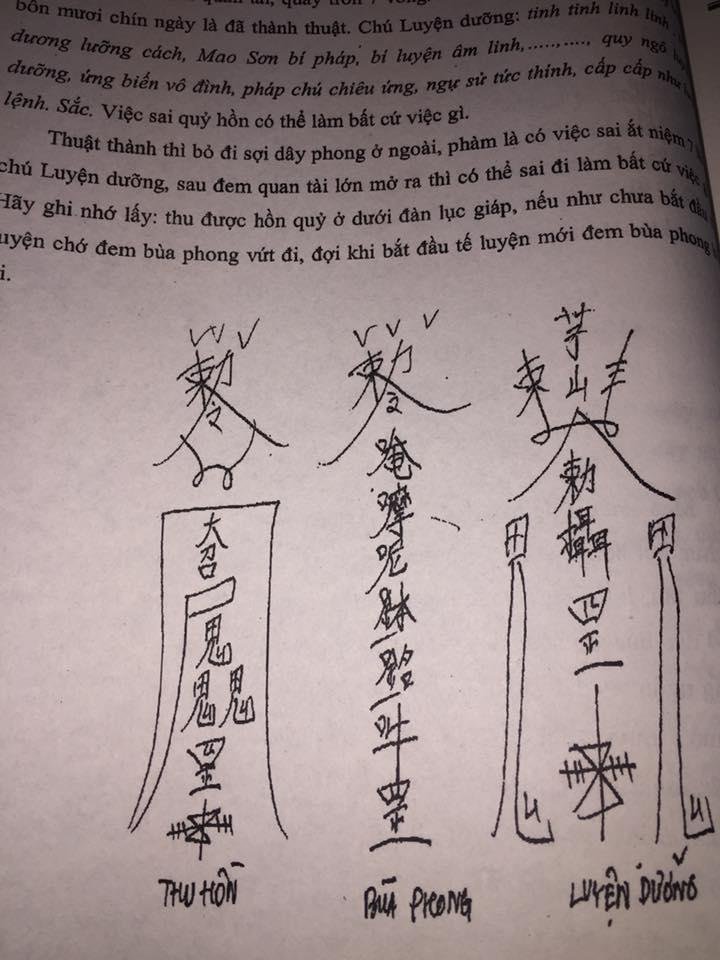 bốn mươi chín ngày là đã thành thuật. Chú Luyện dưỡng: tinh tinh linh linh
dương lưỡng cách, Mao Sơn bí pháp, bí luyện âm linh,.....,...., quy ngô
dưỡng, ứng biến vô đình, pháp chú chiêu ứng, ngự sử tức thính, cấp cấp như
lệnh. Sắc. Việc sai quỷ hồn có thể làm bất cứ việc gì.
Thuật thành thì bỏ đi sợi dây phong ở ngoài, phàm là có việc sai ắt niệm 7
chú Luyện dưỡng, sau đem quan tài lớn mở ra thì có thể sai đi làm bất cứ việc
Hãy ghi nhớ lấy: thu được hồn quỷ ở dưới đàn lục giáp, nếu như chưa bắt đầu
uyện chớ đem bùa phong vứt đi, đợi khi bắt đầu tế luyện mới đem bùa phong
i.
勅令
大召
鬼
鬼鬼
罡
THU HỒN
勅令
唵
嚤
呢
罡
BÙA PHONG
茅山
勅
攝
罡
LUYỆN DƯỠNG